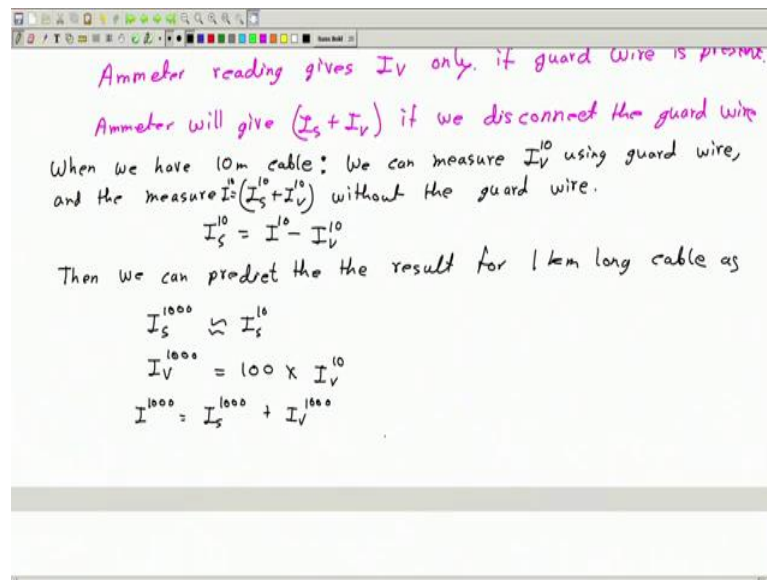 Ammeter reading gives I_V only. if guard wire is present.
Ammeter will give (I_S + I_V) if we disconnect the guard wire
When we have 10m cable: We can measure I_V^10 using guard wire,
and the measure I^10=(I_S^10+I_V^10) without the guard wire.
I_S^10 = I^10 - I_V^10
Then we can predict the the result for 1 km long cable as
I_S^1000 ≈ I_S^10
I_V^1000 = 100 × I_V^10
I^1000 = I_S^1000 + I_V^1000